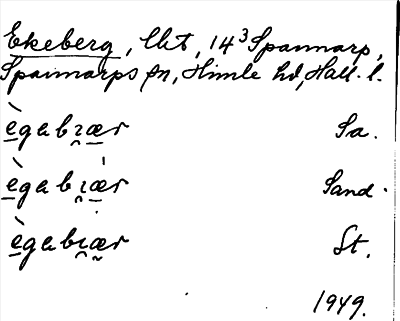 Ekeberg, lht, 14³ Spannarp,
Spannarps sn, Himle hd, Hall. l.
ègabɪær Sa.
ègabɪær Sand.
ègabɪær St.
1949.